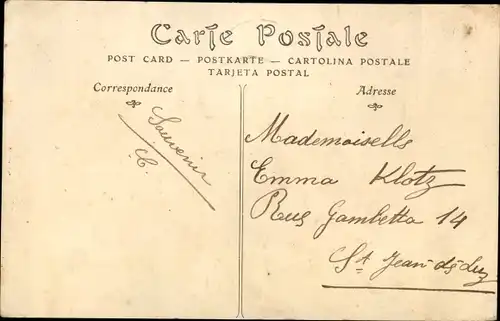 Carte Postale
POST CARD — POSTKARTE — CARTOLINA POSTALE
TARJETA POSTAL
Correspondance
Adresse
Souvenir
E.
Mademoiselle
Emma Klotz
Rue Gambetta 14
St Jean-de-Luz